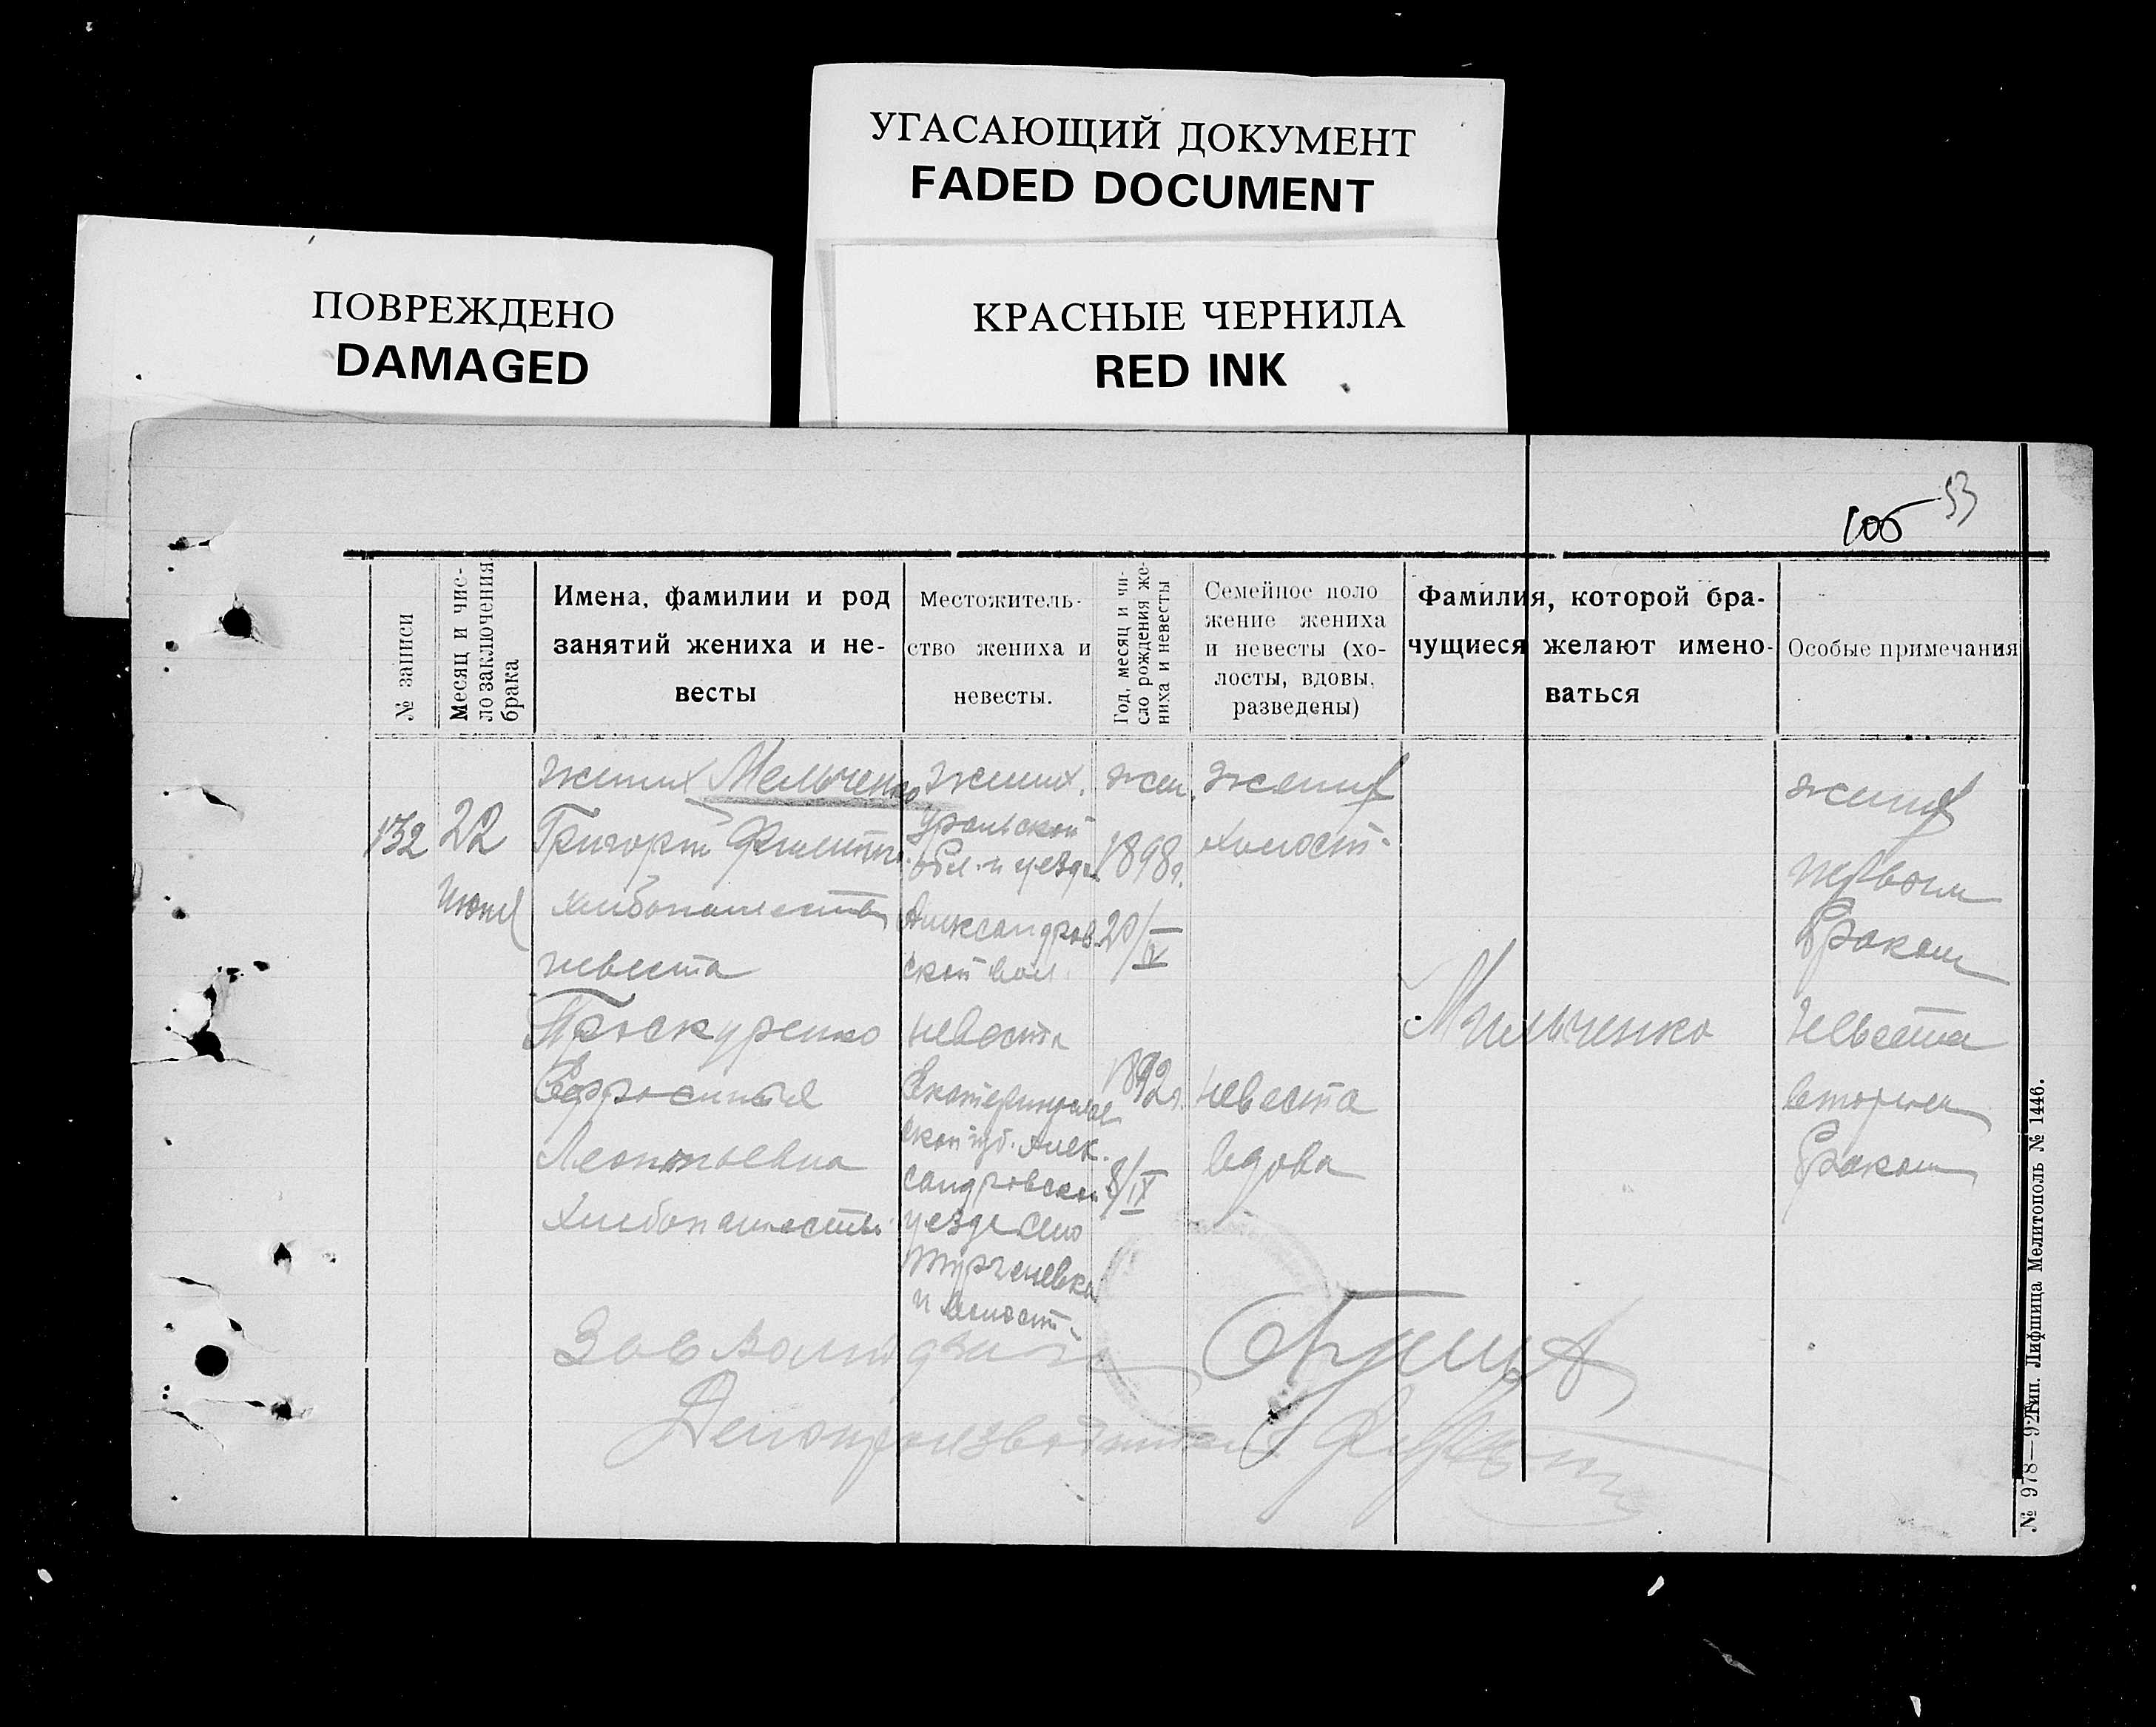 УГАСАЮЩИЙ ДОКУМЕНТ
FADED DOCUMENT
ПОВРЕЖДЕНО
DAMAGED
КРАСНЫЕ ЧЕРНИЛА
RED INK
53
106
№ записи
Месяц и чис-
ло заключения
брака
Имена, фамилии и род
занятий жениха и не-
весты
Местожитель-
ство жениха и
невесты.
Год, месяц и чи-
сло рождения же-
ниха и невесты
Семейное поло
жение жениха
и невесты (хо-
лосты, вдовы,
разведены)
Фамилия, которой бра-
чущиеся желают имено-
ваться
Особые примечания
132
22
Июня
жених Мельченко
Григорий Филипп.
хлебопашество
невеста
Проскуренко
Ефросиния
Леонтьевна
Хлебопашество
жених.
Уральской
обл. и уезда
Александров
ской вол.
невеста
Екатеринослав
ской губ. Алек.
сандровском
уезде село
Тургеневка
и волост.
жен.
1898г.
20/V
1892г.
8/IX
жених
холост.
невеста
вдова
Мильченко
жених
первым
браком
Невеста
вторым
браком
Зав
Делопроизводитель
№ 978—92г.
Тип. Лифшица Мелитополь № 1446.